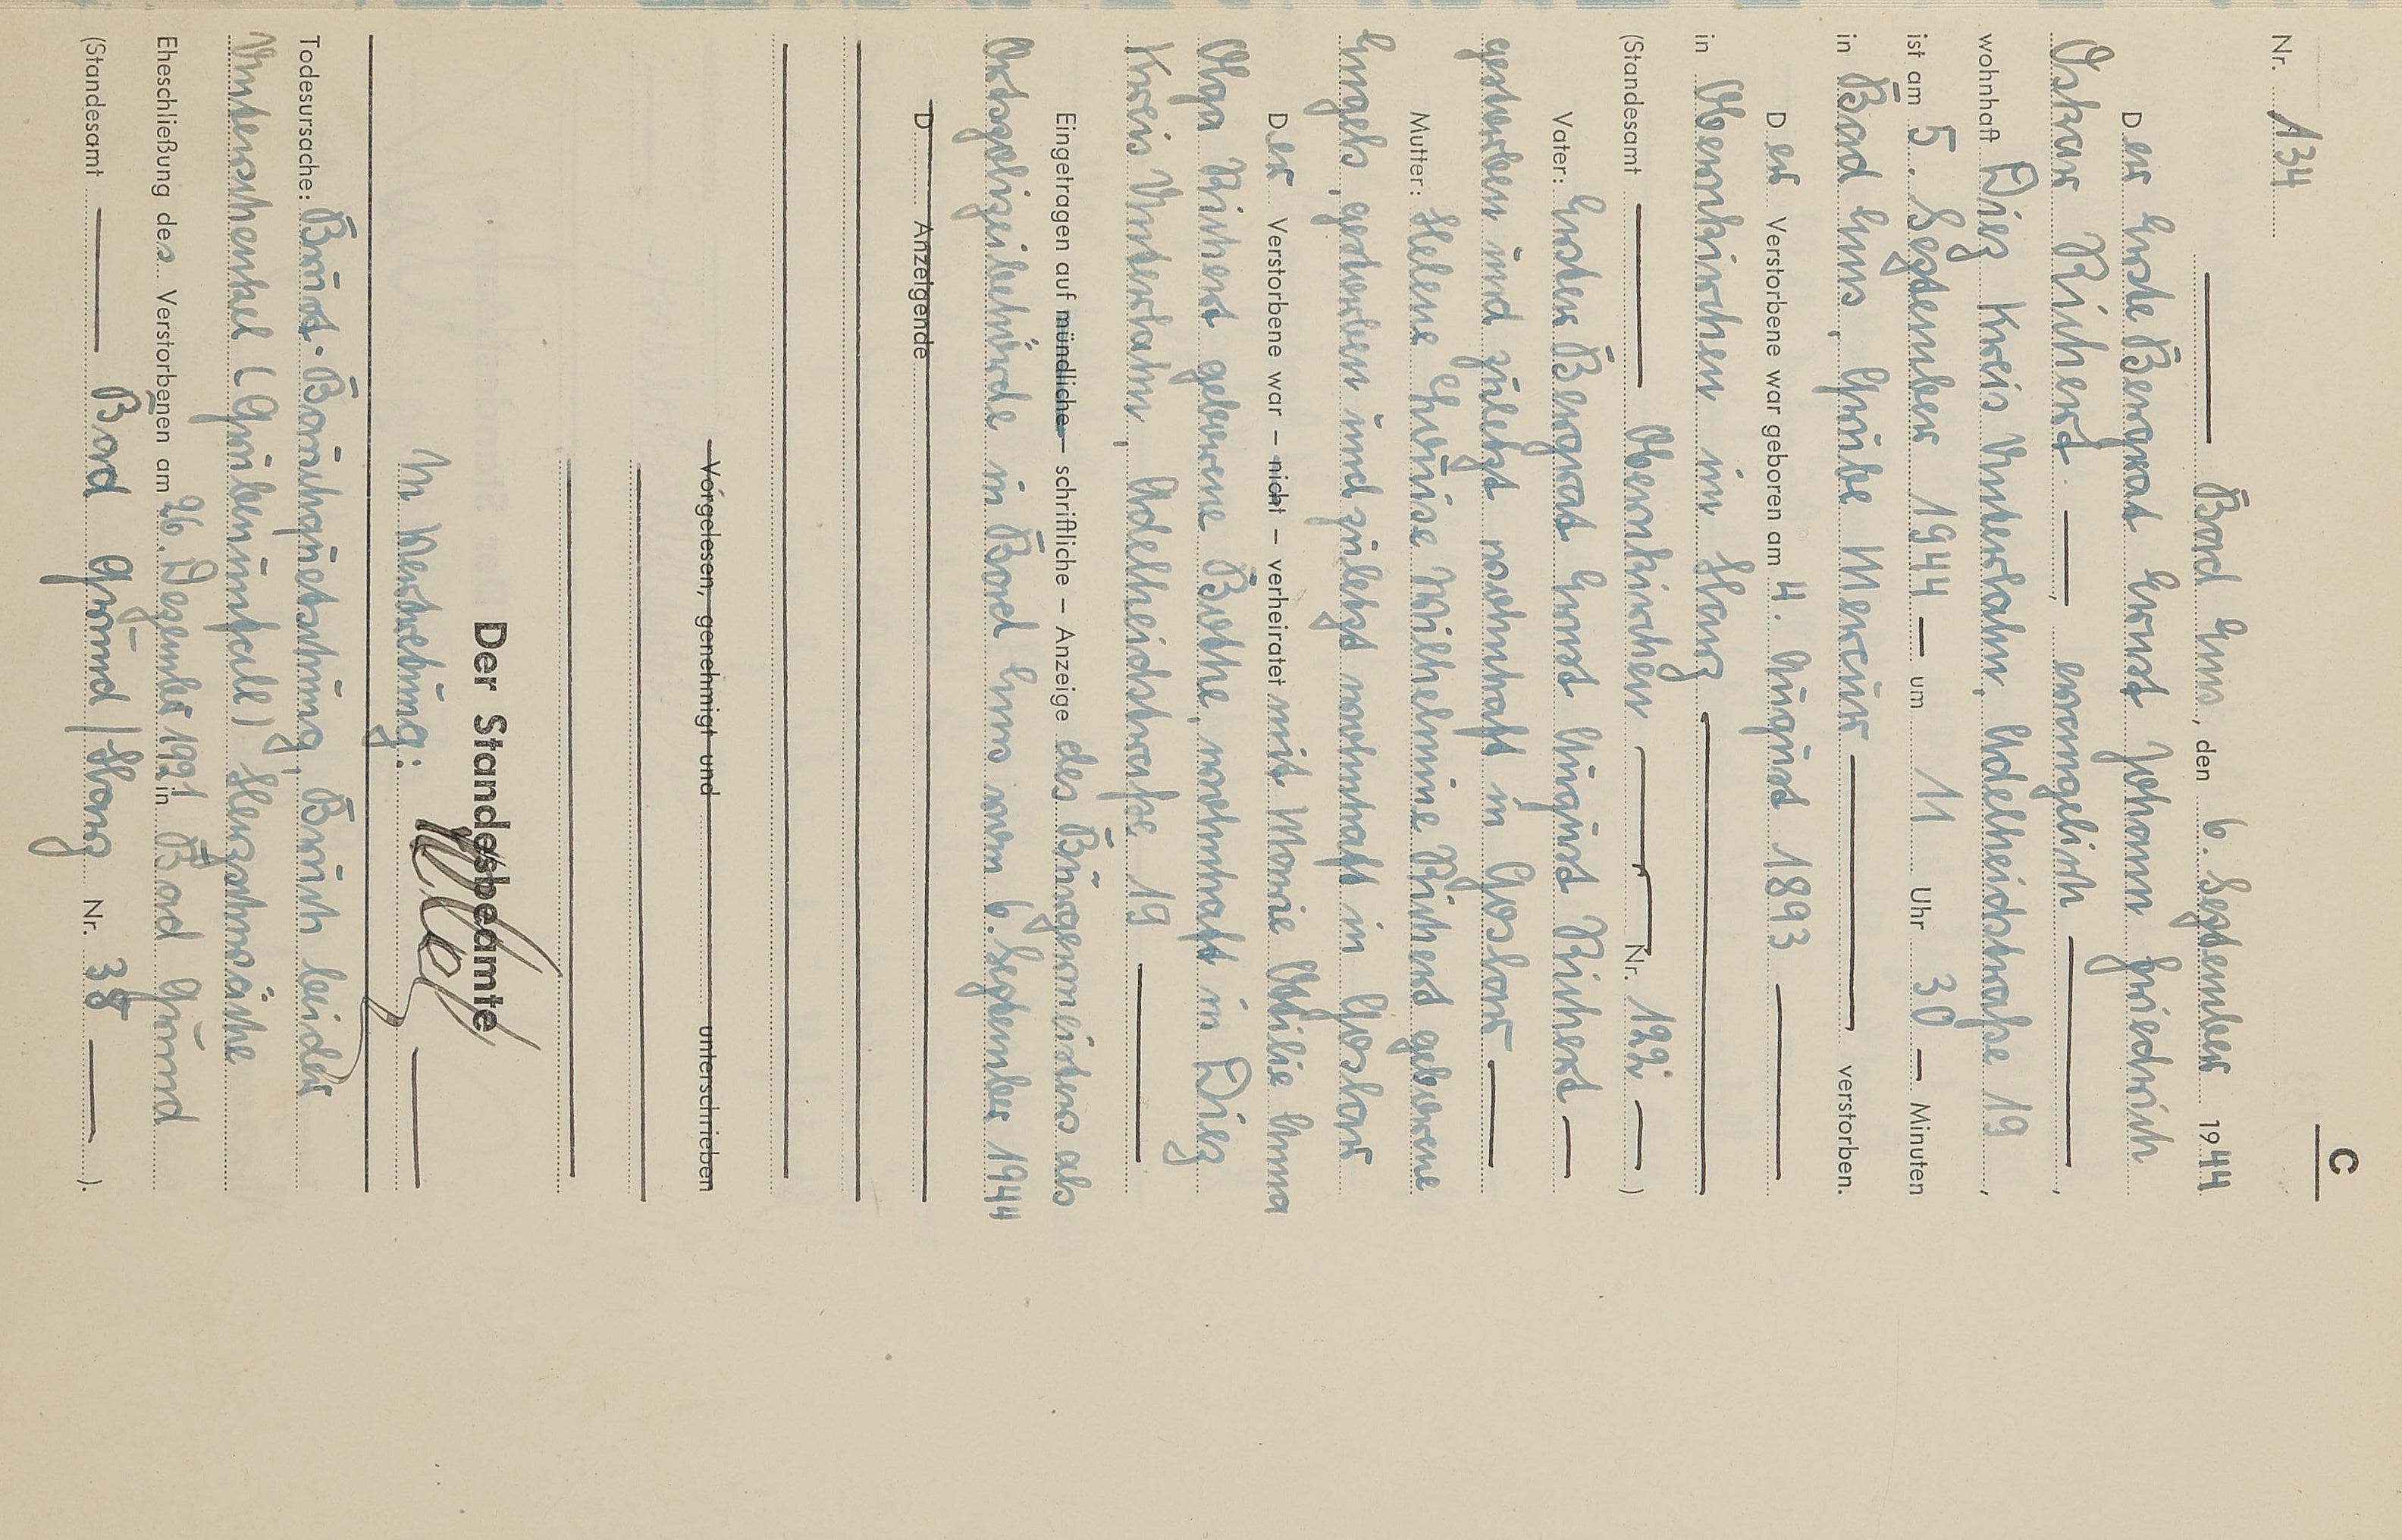 C
Nr. 134
Bad Ems, den 6. September 1944
Der Erste Bergrat Ernst Johann Friedrich
Oskar Richert, evangelisch,
wohnhaft Diez Kreis Unterlahn, Adelheidstraße 19,
ist am 5. September 1944 um 11 Uhr 30 Minuten
in Bad Ems, Grube Mercur verstorben.
Der Verstorbene war geboren am 4. August 1893
in Obernkirchen im Harz
(Standesamt Obernkirchen Nr. 122)
Vater: Erster Bergrat Ernst August Richert
gestorben und zuletzt wohnhaft in Goslar
Mutter: Helene Wilhelmine Richert geborene
Engels, gestorben und zuletzt wohnhaft in Goslar
Der Verstorbene war – nicht – verheiratet mit Marie Ottilie Emma
Olga Richert geborene Bothe, wohnhaft in Diez
Kreis Unterlahn, Adelheidstraße 19
Eingetragen auf mündliche – schriftliche – Anzeige des Bürgermeisters als
Ortspolizeibehörde in Bad Ems vom 6. September 1944
D Anzeigende
Vorgelesen, genehmigt und unterschrieben
Der Standesbeamte
In Vertretung:
Todesursache: Brust-Bauchquetschung, Bruch beider
Unterschenkel (Grubenunfall) Herzschwäche
Eheschließung des Verstorbenen am 26. Dezember 1921 in Bad Grund
(Standesamt Bad Grund / Harz Nr. 38).